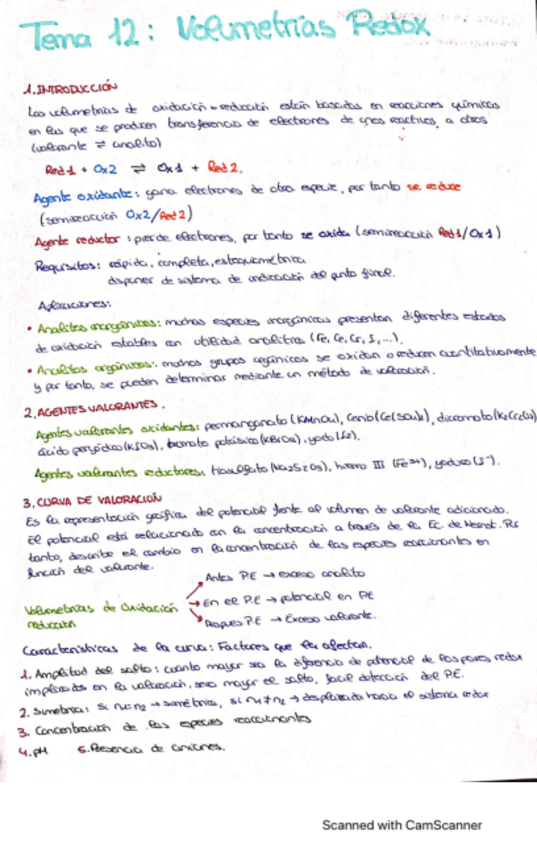 Tema 12: Volumetrías Redox
1. INTRODUCCIÓN
Las volumetrías de oxidación-reducción están basadas en reacciones químicas
en las que se producen transferencia de electrones de unos reactivos a otros
(valorante ⇌ analito)
Red 1 + Ox2 ⇌ Ox1 + Red 2.
Agente oxidante: gana electrones de otra especie, por tanto se reduce
(semireacción Ox2/Red2)
Agente reductor: pierde electrones, por tanto se oxida (semireacción Red1/Ox1)
Requisitos: rápida, completa, estequiométrica
disponer de sistema de indicación del punto final.
Aplicaciones:
• Analitos inorgánicos: muchas especies inorgánicas presentan diferentes estados
de oxidación estables con utilidad analítica (Fe, Ce, Cr, I, ...).
• Analitos orgánicos: muchos grupos orgánicos se oxidan o reducen cuantitativamente
y por tanto, se pueden determinar mediante un método de valoración.
2. AGENTES VALORANTES.
Agentes valorantes oxidantes: permanganato (KMnO4), Cerio (Ce(SO4)2), dicromato (K2Cr2O7)
ácido peryódico (KIO3), bromato potásico (KBrO3), yodo (I2).
Agentes valorantes reductores: tiosulfato (Na2S2O3), hierro III (Fe3+), yoduro (I-).
3. CURVA DE VALORACIÓN
Es la representación gráfica del potencial frente al volumen de valorante adicionado.
El potencial está relacionado con la concentración a través de la Ec. de Nernst. Por
tanto, describe el cambio en la concentración de las especies reaccionantes en
función del valorante.
Antes P.E → exceso analito
Volumetrías de Oxidación → En el P.E → potencial en PE
reducción
Después P.E → Exceso valorante.
Características de la curva: Factores que la afectan.
1. Amplitud del salto: cuanto mayor sea la diferencia de potencial de los pares redox
implicados en la valoración, será mayor el salto, fácil detección del P.E.
2. Simetría: Si n1=n2 → simétrica, si n1≠n2 → desplazada hacia el sistema redox
3. Concentración de las especies reaccionantes
4. pH 5. Presencia de aniones.
Scanned with CamScanner